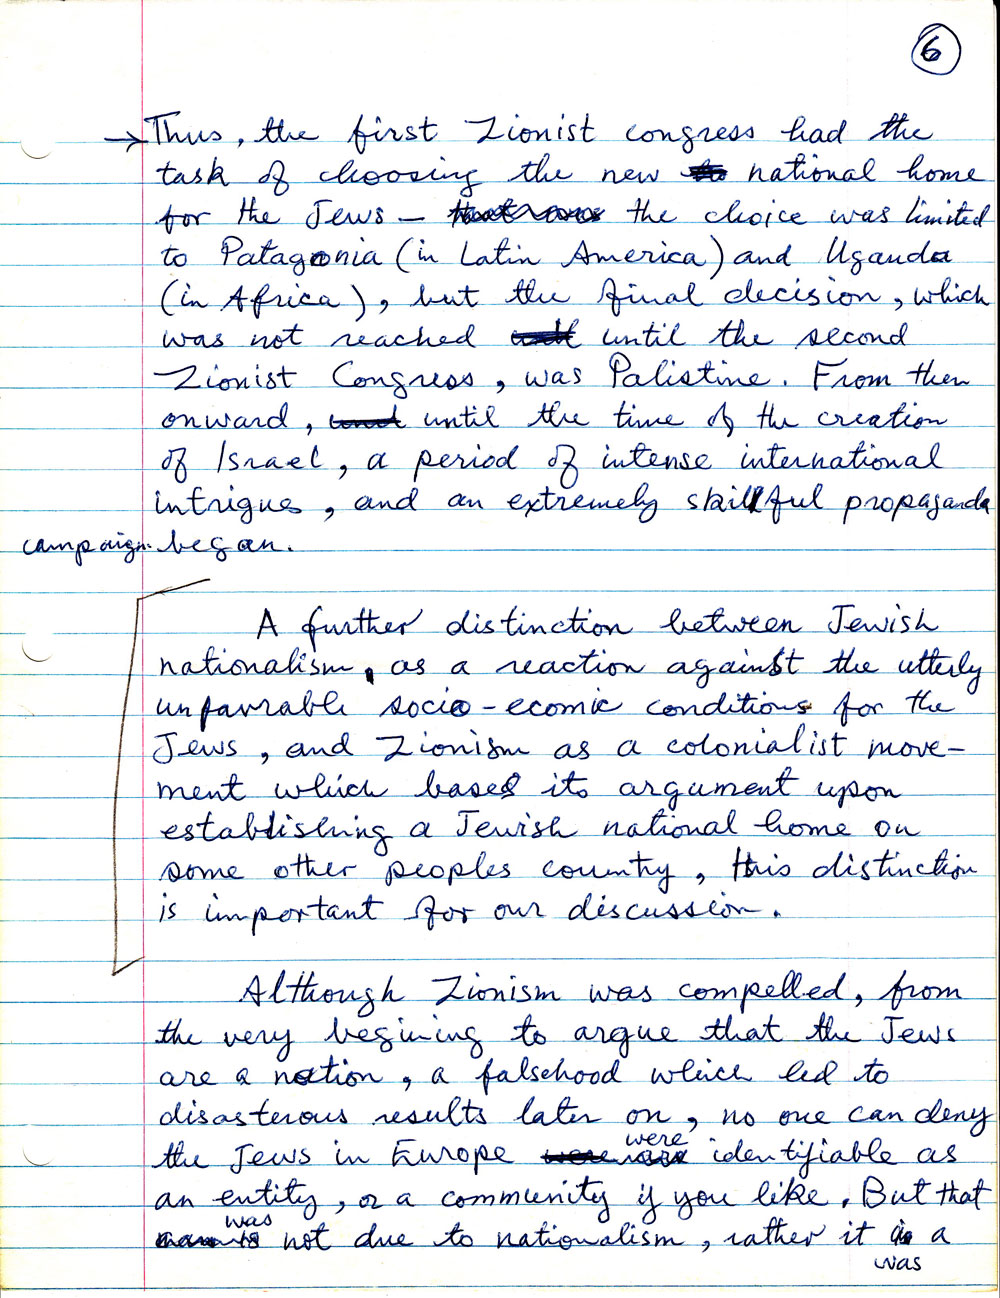 6
→Thus, the first Zionist congress had the
task of choosing the new national home
for the Jews – that was the choice was limited
to Patagonia (in Latin America) and Uganda
(in Africa), but the final decision, which
was not reached until the second
Zionist Congress, was Palistine. From then
onward, until the time of the creation
of Israel, a period of intense international
intrigue, and an extremely skillful propaganda
campaign began.
A further distinction between Jewish
nationalism, as a reaction against the utterly
unfavrable socio-ecomic conditions for the
Jews, and Zionism as a colonialist move-
ment which based its argument upon
establishing a Jewish national home on
some other peoples country, this distinction
is important for our discussion.
Although Zionism was compelled, from
the very begining to argue that the Jews
are a nation, a falsehood which led to
disasterous results later on, no one can deny
the Jews in Europe were identifiable as
an entity, or a community if you like. But that
was not due to nationalism, rather it was a